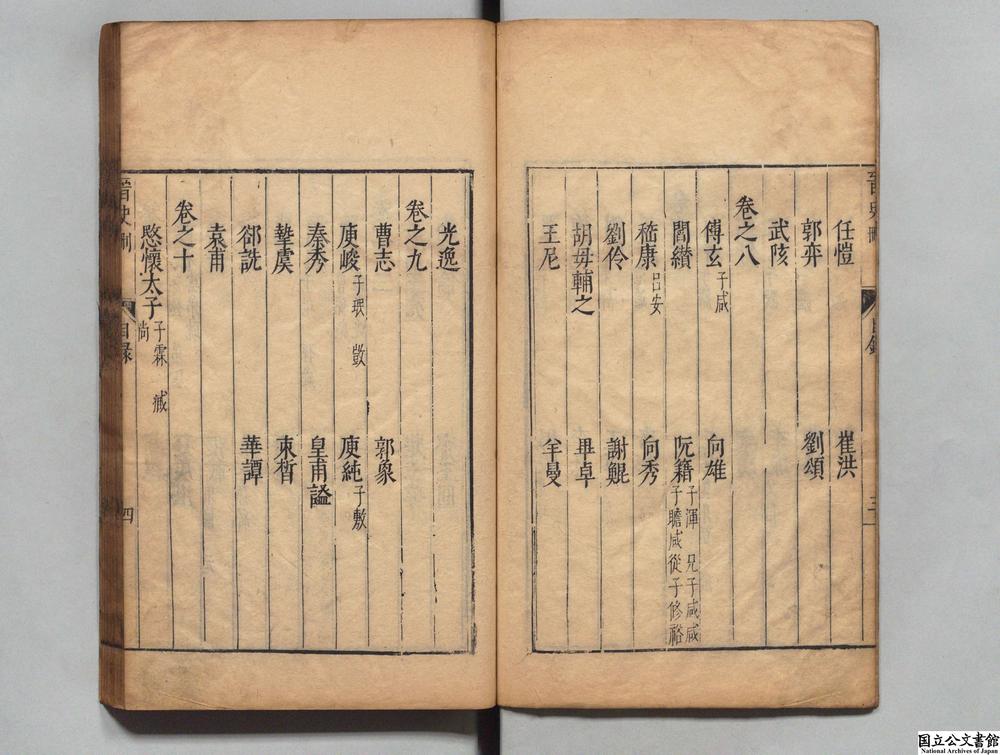 任愷 崔洪
郭奕 劉頌
武陔
卷之八
傅玄 子咸 向雄
閻纘 阮籍 子渾 兄子咸 咸子瞻 咸從子修 裕
嵇康 呂安 向秀
劉伶 謝鯤
胡毋輔之 畢卓
王尼 羊曼
光逸
卷之九
曹志 郭象
庾峻 子珉 敳 庾純 子敷
秦秀 皇甫謐
摯虞 束晳
郤詵 華譚
袁甫
卷之十
愍懷太子 子霖 臧 尚
晉史刪 目錄 四
国立公文書館
National Archives of Japan